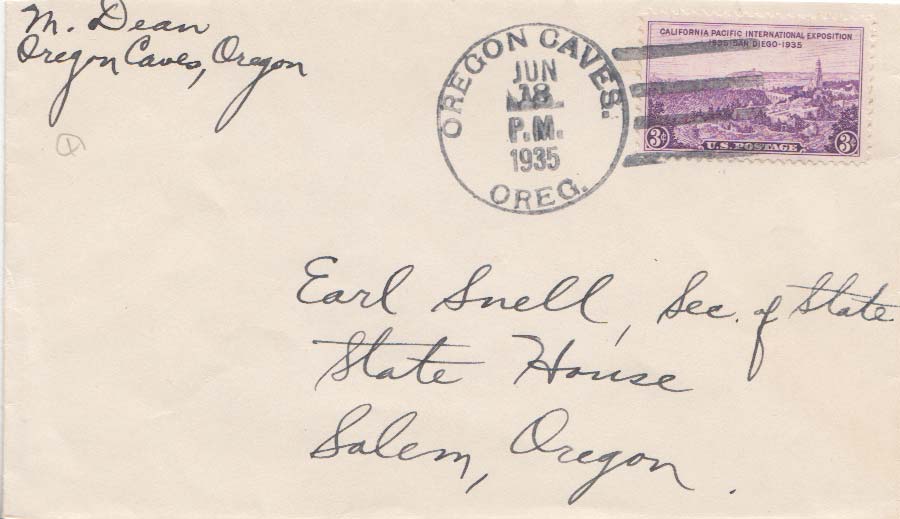 M. Dean
Oregon Caves, Oregon
OREGON CAVES.
JUN
18
P.M.
1935
OREG.
CALIFORNIA PACIFIC INTERNATIONAL EXPOSITION
1935 · SAN DIEGO · 1935
3¢ U.S. POSTAGE 3¢
Earl Snell, Sec. of State
State House
Salem, Oregon.